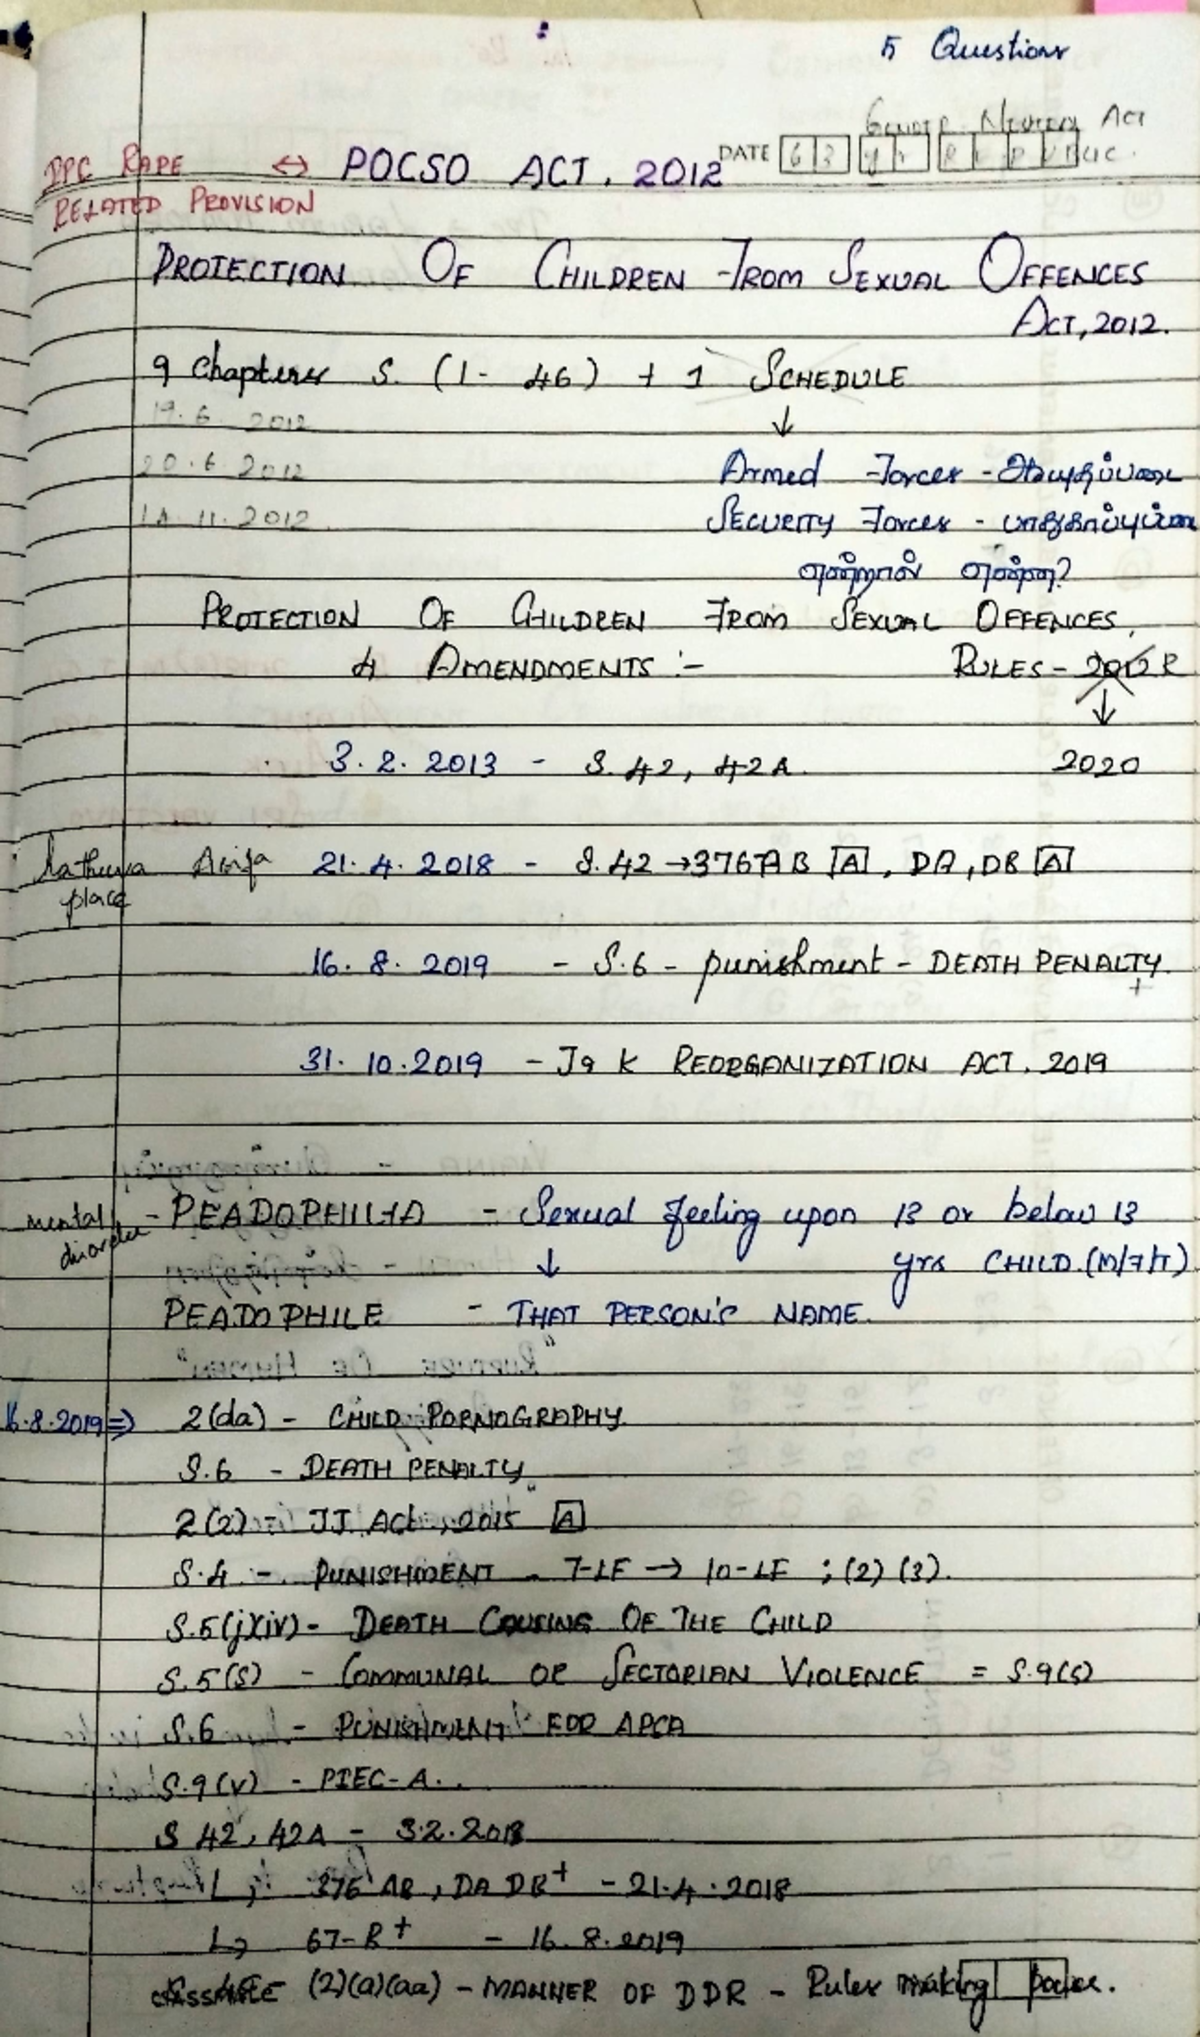 5 Questions
Gender Neutral Act
IPC RAPE ⇔ POCSO ACT, 2012 DATE 63 yr REPUBLIC.
RELATED PROVISION
PROTECTION OF CHILDREN FROM SEXUAL OFFENCES
ACT, 2012.
9 Chapters S. (1- 46) + 1 SCHEDULE
19.6 2012 ↓
20.6 2012 Armed Forces -
14.11.2012 SECURITY Forces -
என்றால் என்ன?
PROTECTION OF CHILDREN FROM SEXUAL OFFENCES,
4 AMENDMENTS :- RULES - 2012 R
↓
3.2.2013 - S.42, 42A. 2020
Kathuva Asifa 21.4.2018 - S.42 → 376AB [A], DA, DB [A]
place
16.8.2019 - S.6 - punishment - DEATH PENALTY
+
31.10.2019 - J & K REORGANIZATION ACT, 2019
mental disorder - PEADOPHILIA - Sexual feeling upon 13 or below 13
↓ yrs CHILD (M/F/T)
PEADOPHILE - THAT PERSON'S NAME.
16.8.2019 ⇒ 2(da) - CHILD PORNOGRAPHY
S.6 - DEATH PENALTY
2(2) - JJ Act, 2015 [A]
S.4 - PUNISHMENT - 7-LF → 10-LF ; (2) (3).
S.5(j)(iv) - DEATH CAUSING OF THE CHILD
S.5(S) - COMMUNAL OR SECTORIAN VIOLENCE = S.9(S)
S.6 - PUNISHMENT FOR APCA
S.9(v) - PIEC-A..
S 42, 42A - 3.2.2013
L, 376 AB, DA DB+ - 21.4.2018
L, 67-B+ - 16.8.2019
(2)(a)(aa) - MANNER OF DDR - Rules making power.